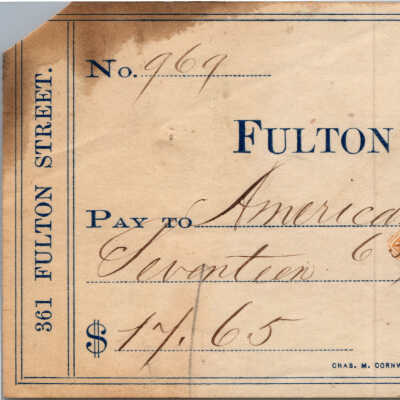 361 FULTON STREET.
No. 969
FULTON
PAY TO America
Seventeen 65
$ 17.65
CHAS. M. CORNW